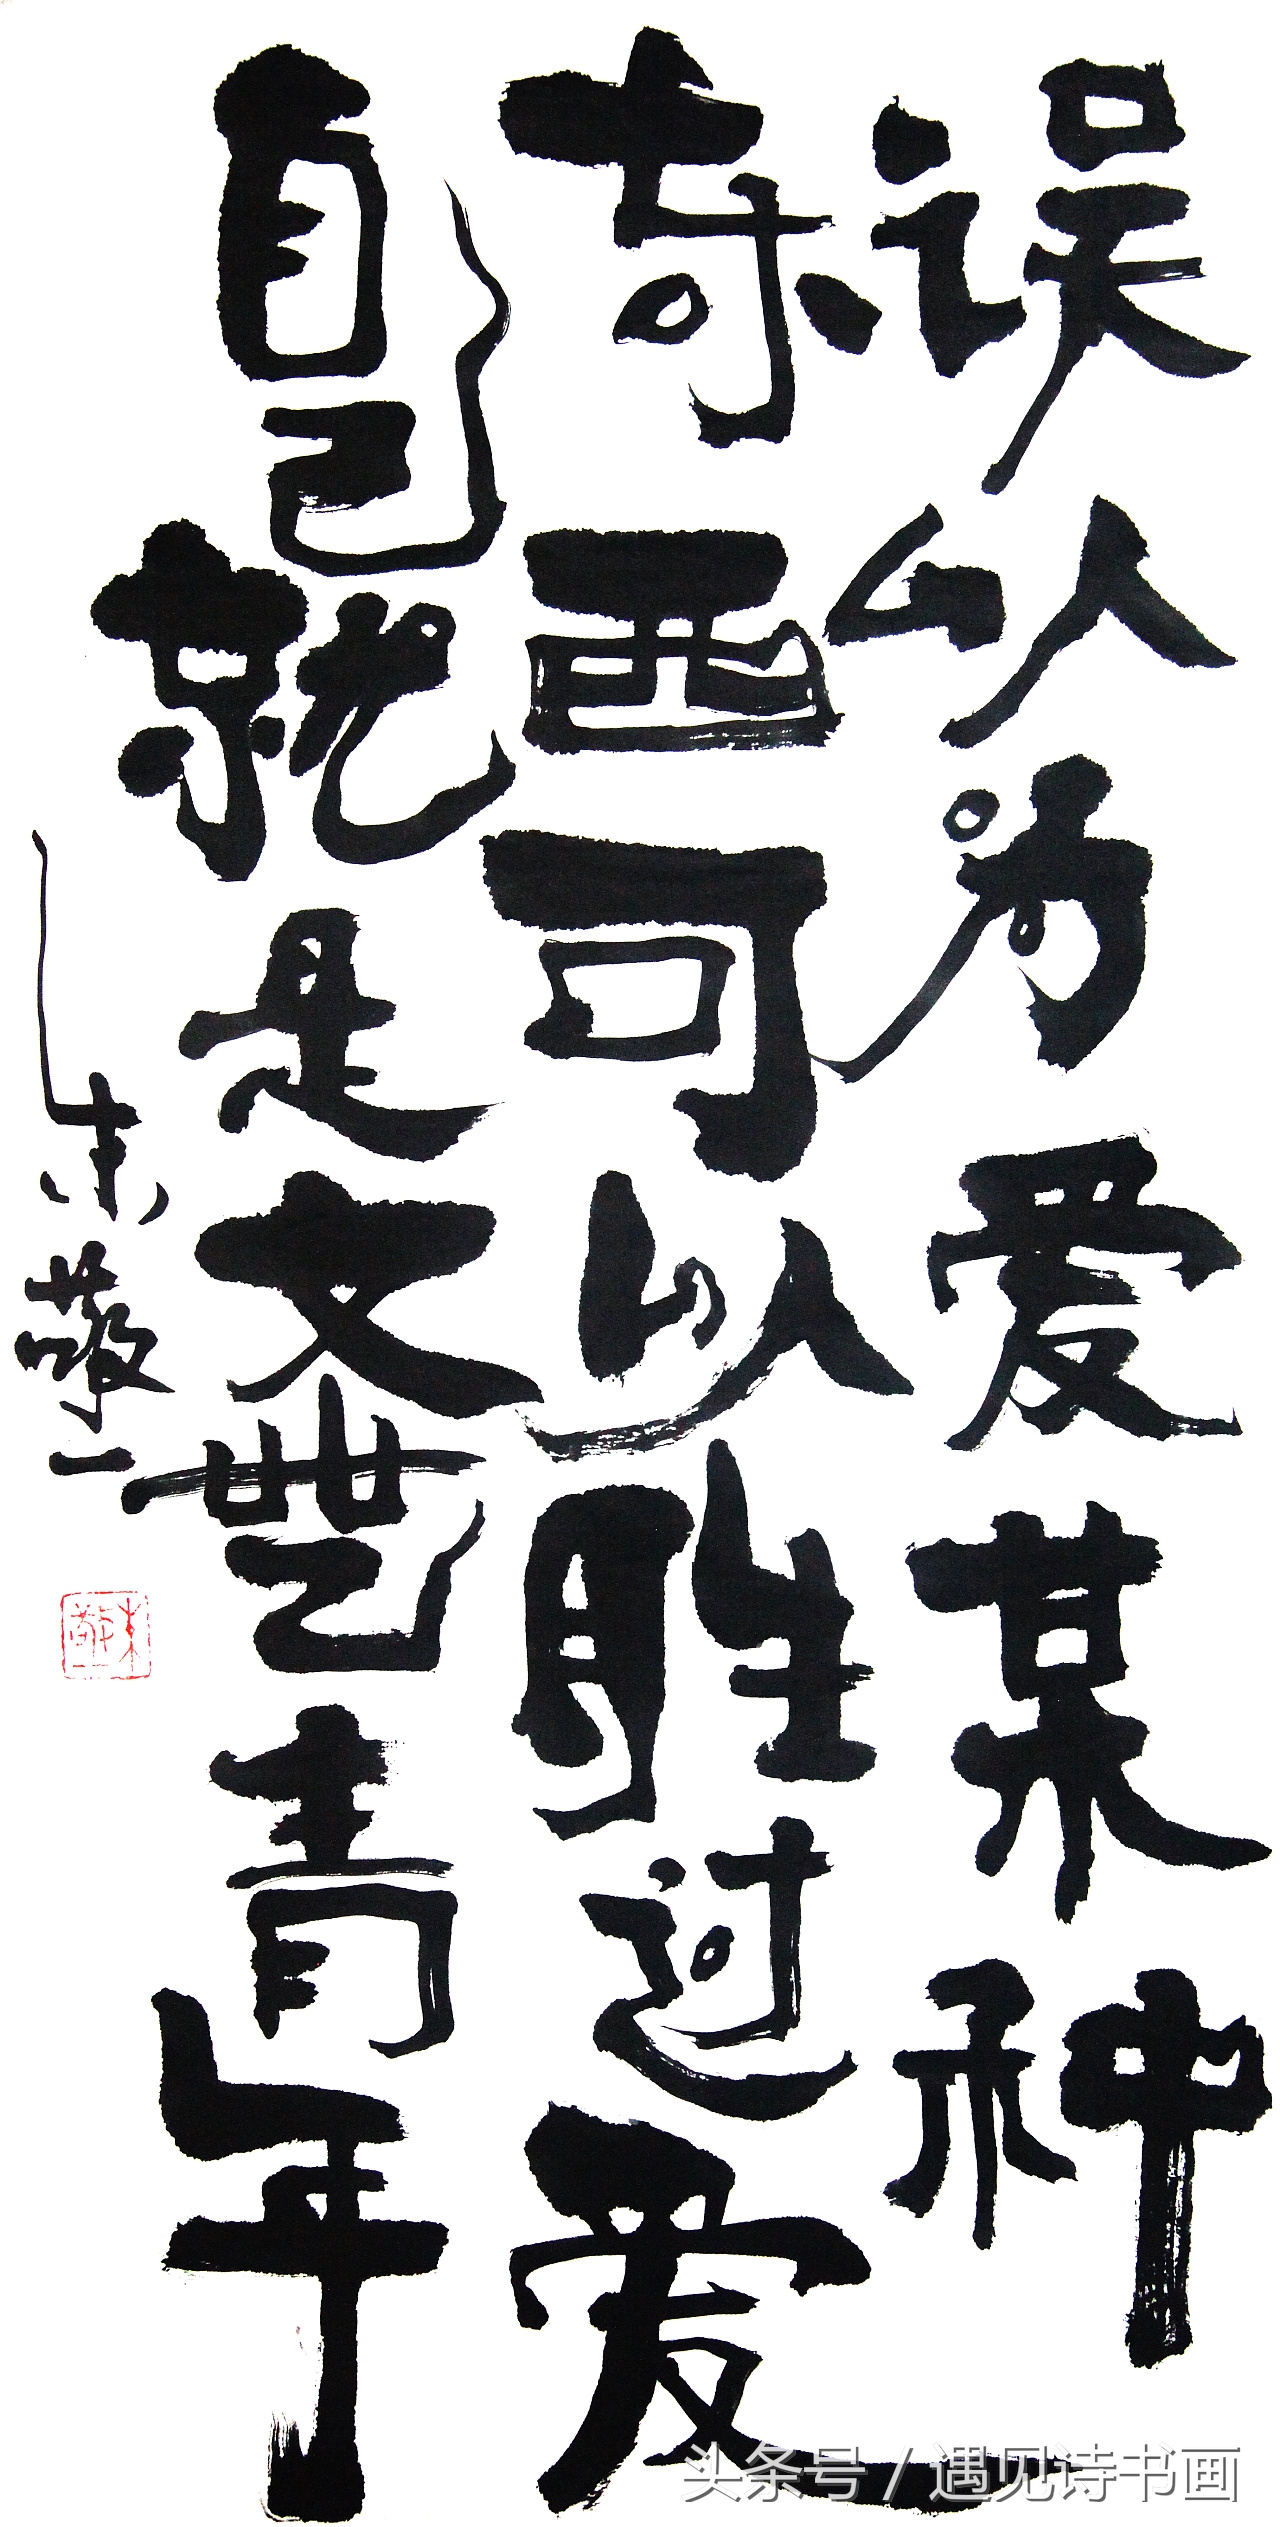 误以为爱某种
东西可以胜过爱
自己就是文艺青年
朱敬一
朱敬一
头条号 / 遇见诗书画